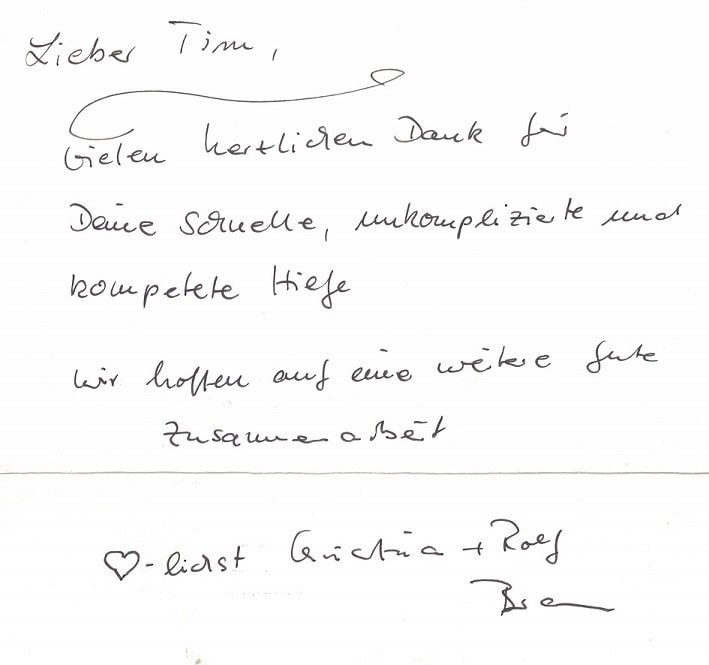 Lieber Tim,
Vielen herzlichen Dank für
Deine schnelle, unkomplizierte und
kompetete Hilfe
Wir hoffen auf eine weitere gute
Zusammenarbeit
♡-lichst Christina + Rolf